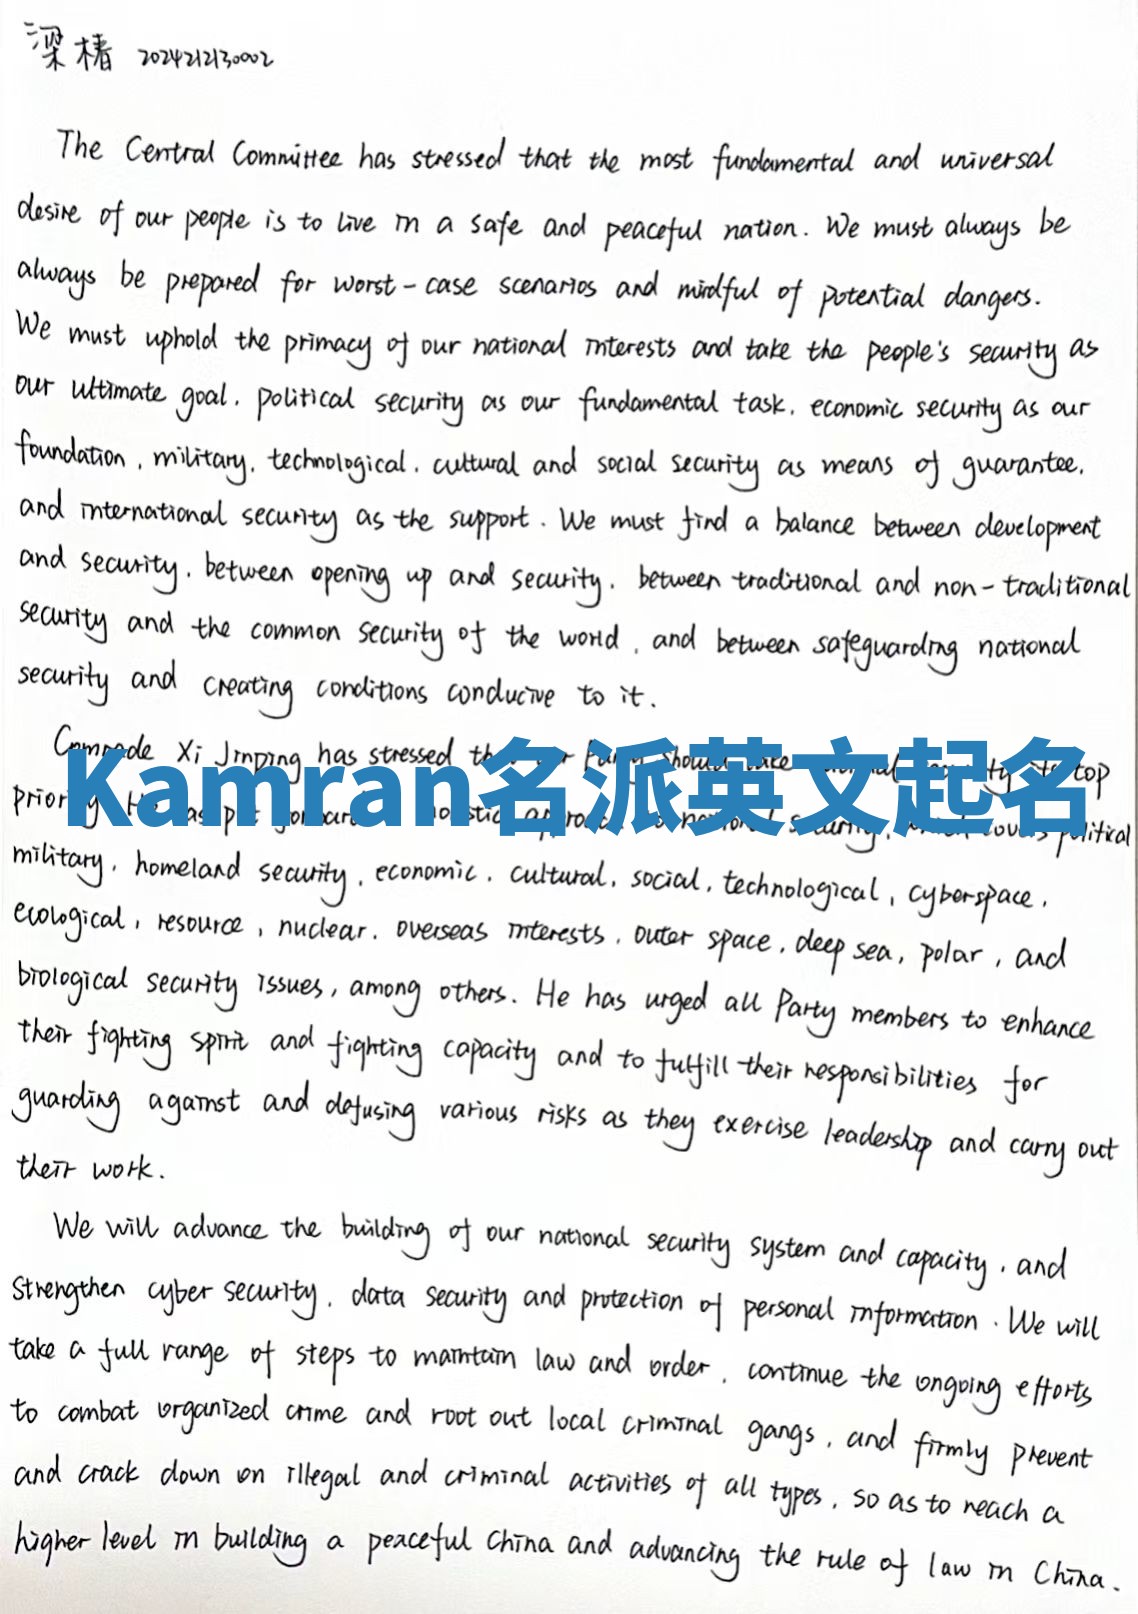 梁椿 2024212130002
The Central Committee has stressed that the most fundamental and universal
desire of our people is to live in a safe and peaceful nation. We must always be
always be prepared for worst-case scenarios and mindful of potential dangers.
We must uphold the primacy of our national interests and take the people's security as
our ultimate goal, political security as our fundamental task, economic security as our
foundation, military, technological, cultural and social security as means of guarantee,
and international security as the support. We must find a balance between development
and security, between opening up and security, between traditional and non-traditional
security and the common security of the world, and between safeguarding national
security and creating conditions conducive to it.
Comrade Xi Jinping has stressed should top
Kamran名派英文起名
political
military, homeland security, economic, cultural, social, technological, cyberspace,
ecological, resource, nuclear, overseas interests, outer space, deep sea, polar, and
biological security issues, among others. He has urged all Party members to enhance
their fighting spirit and fighting capacity and to fulfill their responsibilities for
guarding against and defusing various risks as they exercise leadership and carry out
their work.
We will advance the building of our national security system and capacity, and
strengthen cyber security, data security and protection of personal information. We will
take a full range of steps to maintain law and order, continue the ongoing efforts
to combat organized crime and root out local criminal gangs, and firmly prevent
and crack down on illegal and criminal activities of all types, so as to reach a
higher level in building a peaceful China and advancing the rule of law in China.